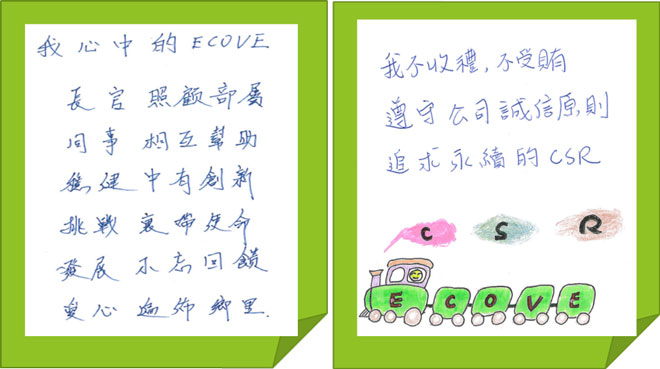 我心中的ECOVE
長官照顧部屬
同事相互幫助
穩健中有創新
挑戰裏帶使命
發展不忘回饋
愛心遍佈鄉里.
我不收禮,不受賄
遵守公司誠信原則
追求永續的CSR
C S R
E C O V E